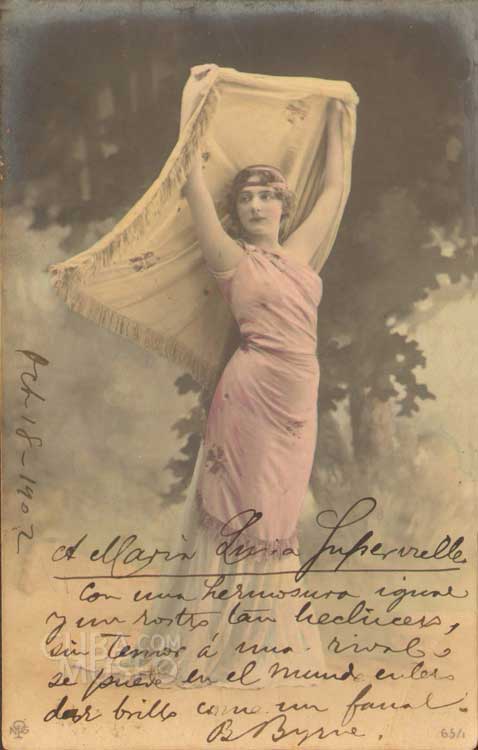 Oct 18-1902
A Maria Luisa Supervielle
Con una hermosura igual
y un rostro tan hechicero,
sin temor á una rival
se puede en el mundo entero
dar brillo como un fanal.
B. Byrne.
CLIPA.COM
MUSEO
NPG
65/1